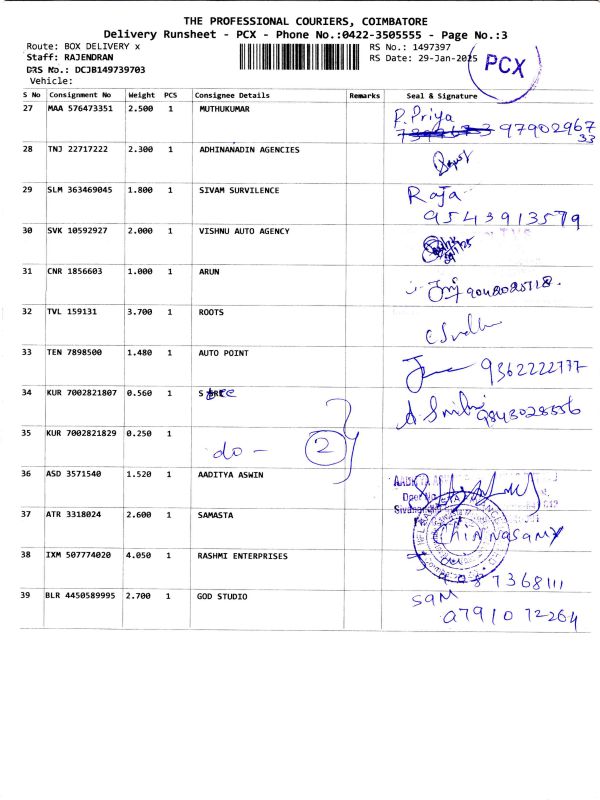 THE PROFESSIONAL COURIERS, COIMBATORE
Delivery Runsheet - PCX - Phone No.:0422-3505555 - Page No.:3
Route: BOX DELIVERY x
RS No.: 1497397
Staff: RAJENDRAN
RS Date: 29-Jan-2025
DRS No.: DCJB149739703
PCX
Vehicle:
S No Consignment No Weight PCS Consignee Details Remarks Seal & Signature
27 MAA 576473351 2.500 1 MUTHUKUMAR P. Priya
9790296733
28 TNJ 22717222 2.300 1 ADHINANADIN AGENCIES
29 SLM 363469045 1.800 1 SIVAM SURVILENCE Raja
9543913579
30 SVK 10592927 2.000 1 VISHNU AUTO AGENCY
31 CNR 1856603 1.000 1 ARUN
32 TVL 159131 3.700 1 ROOTS
33 TEN 7898500 1.480 1 AUTO POINT 9362222777
34 KUR 7002821807 0.560 1 S
35 KUR 7002821829 0.250 1 do - 2
36 ASD 3571540 1.520 1 AADITYA ASWIN
37 ATR 3318024 2.600 1 SAMASTA Chinnasamy
38 IXM 507774020 4.050 1 RASHMI ENTERPRISES
39 BLR 4450589995 2.700 1 GOD STUDIO